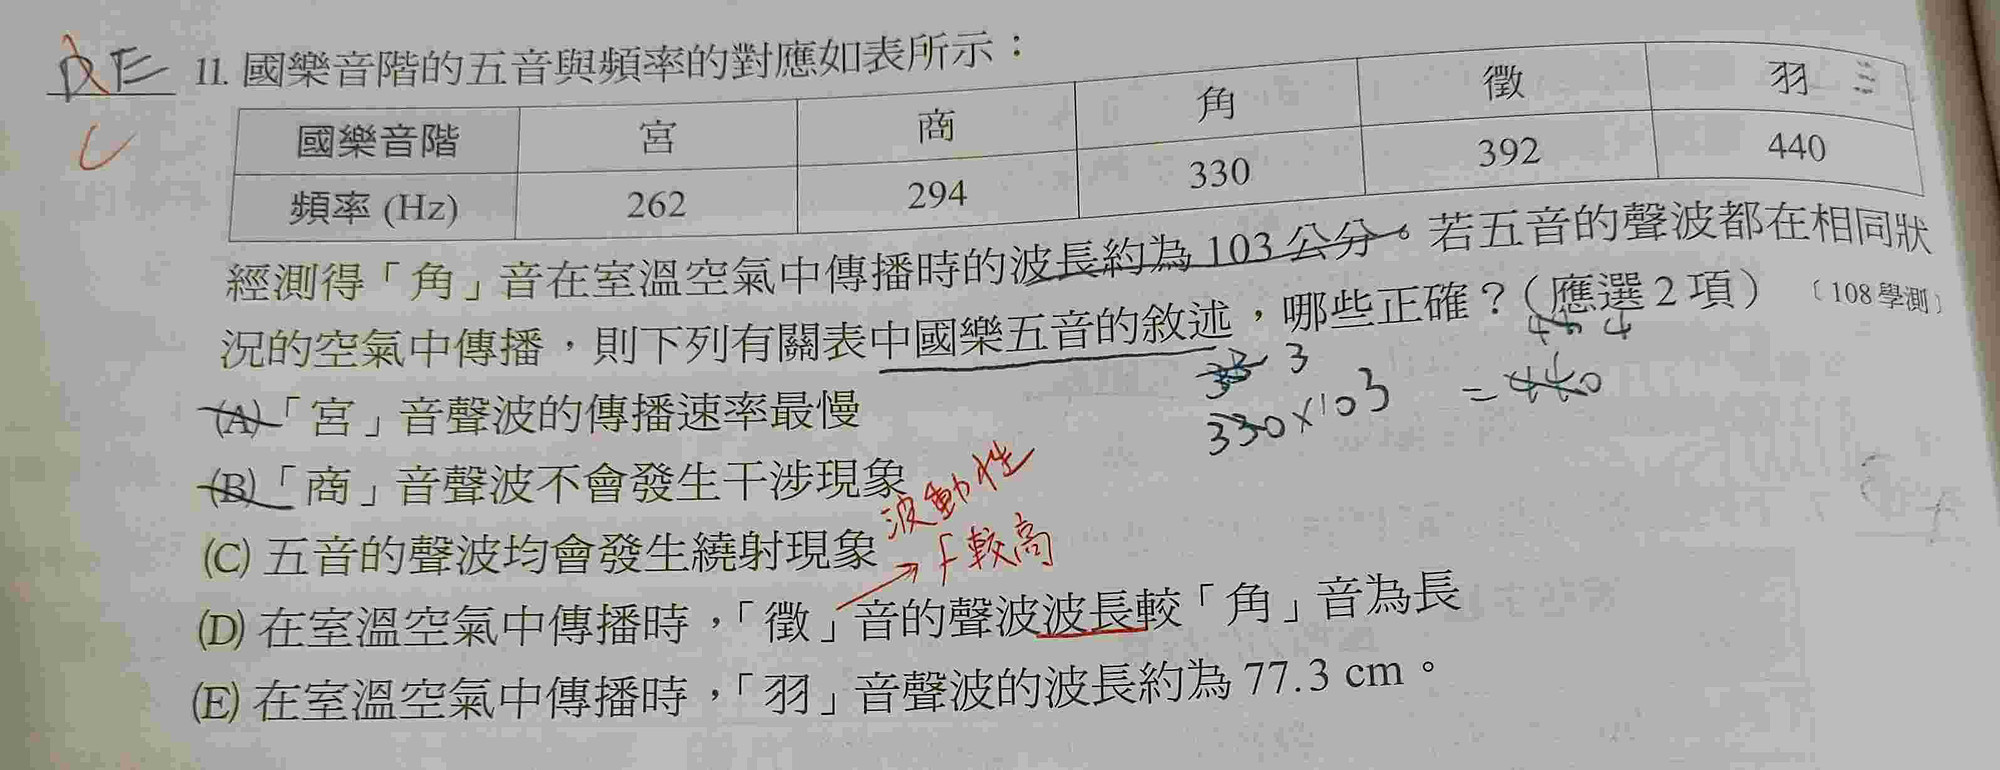 DE
C
11. 國樂音階的五音與頻率的對應如表所示：
國樂音階 宮 商 角 徵 羽
頻率 (Hz) 262 294 330 392 440
經測得「角」音在室溫空氣中傳播時的波長約為 103 公分。若五音的聲波都在相同狀
況的空氣中傳播，則下列有關表中國樂五音的敘述，哪些正確？（應選 2 項） 〔108 學測〕
(A)「宮」音聲波的傳播速率最慢
3
330×103 = 440
(B)「商」音聲波不會發生干涉現象
波動性
(C) 五音的聲波均會發生繞射現象
→ f 較高
(D) 在室溫空氣中傳播時，「徵」音的聲波波長較「角」音為長
(E) 在室溫空氣中傳播時，「羽」音聲波的波長約為 77.3 cm。